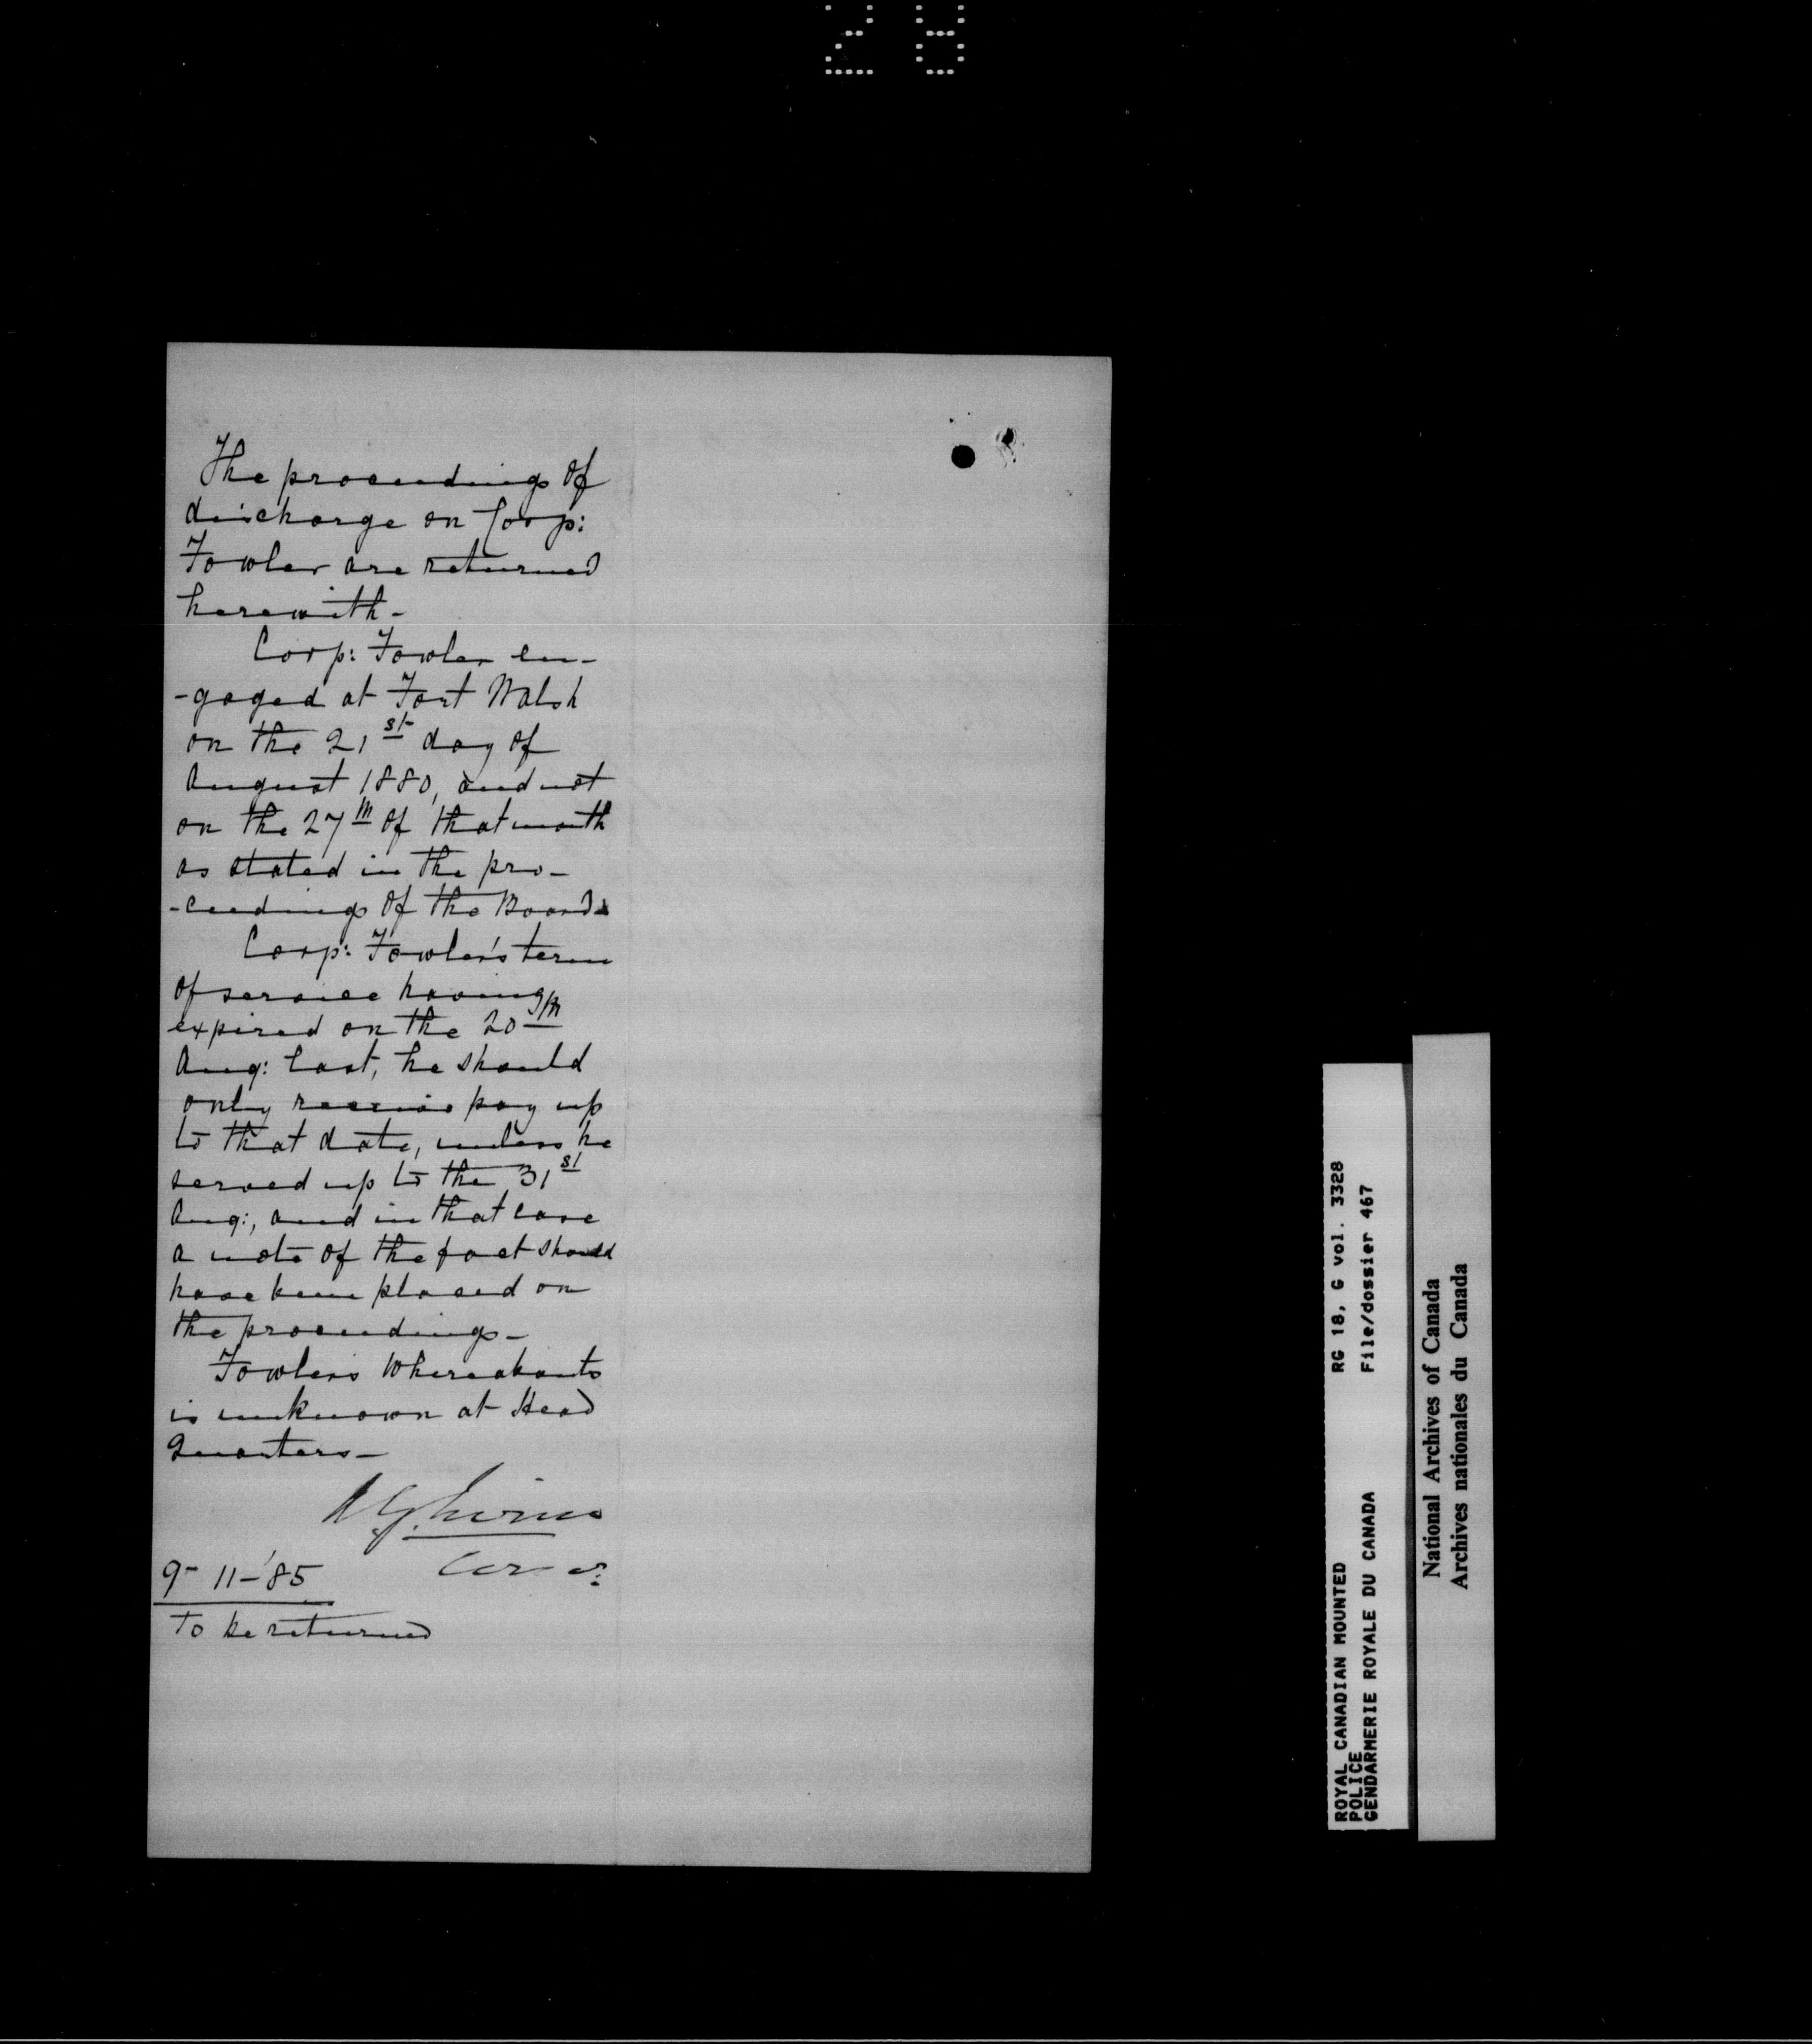 28
The proceedings of
discharge on Corp:
Fowler are returned
herewith-
Corp: Fowler en-
-gaged at Fort Walsh
on the 21st day of
August 1880, and not
on the 27th of that month
as stated in the pro-
-ceedings of the Board
Corp: Fowler's term
of service having
expired on the 20th
Aug: last, he should
only receive pay up
to that date, unless he
served up to the 31st
Aug:, and in that case
a note of the fact should
have been placed on
the proceedings-
Fowlers whereabouts
is unknown at Head
Quarters-
A G Irvine
Comr:
9-11-'85
To be returned
ROYAL CANADIAN MOUNTED RG 18, G vol. 3328
POLICE
GENDARMERIE ROYALE DU CANADA File/dossier 467
National Archives of Canada
Archives nationales du Canada